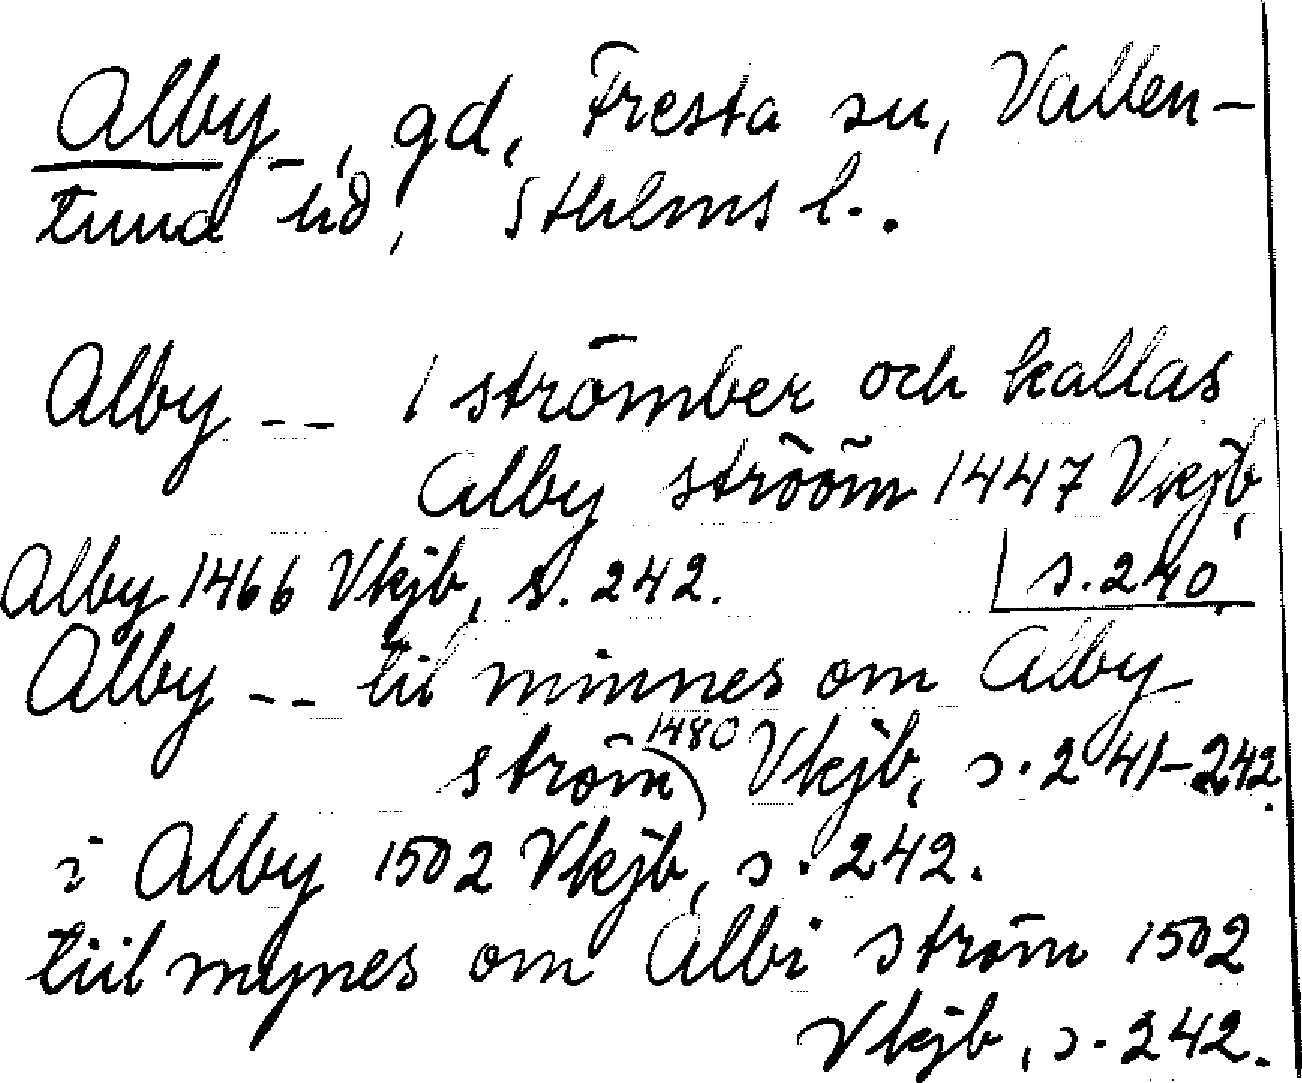 Alby, gd, Fresta sn, Vallen-
tuna hd, Sthlms l..
Alby -- i strömber och kallas
Alby strööm 1447 Vkjb,
s. 240.
Alby 1466 Vkjb, s. 242.
Alby -- til minnes om Alby
ström 1480 Vkjb, s. 241-242.
i Alby 1502 Vkjb, s. 242.
tiil mynes om Albi ström 1502
Vkjb, s. 242.